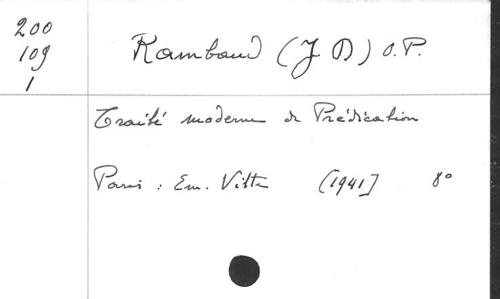 200
109
1
Rambaud (J D) O.P.
Traité moderne de Prédication
Paris : Em. Vitte [1941] 8°